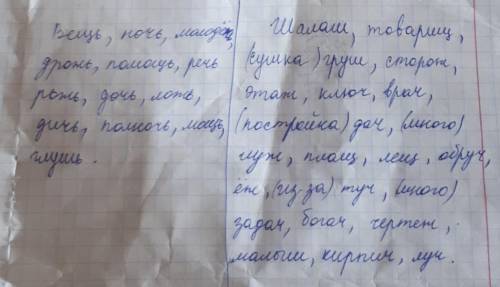 Вещь, ночь, молодёжь,
дрожь, помощь, речь
рожь, дочь, ложь,
дичь, полночь, мощь,
глушь.
Шалаш, товарищ,
(сумка) груш, сторож,
этаж, ключ, врач,
(постройка) дач, (много)
луж, плащ, лещ, обруч,
ёж, (из-за) туч, (много)
задач, богач, чертёж,
малыш, кирпич, луч.